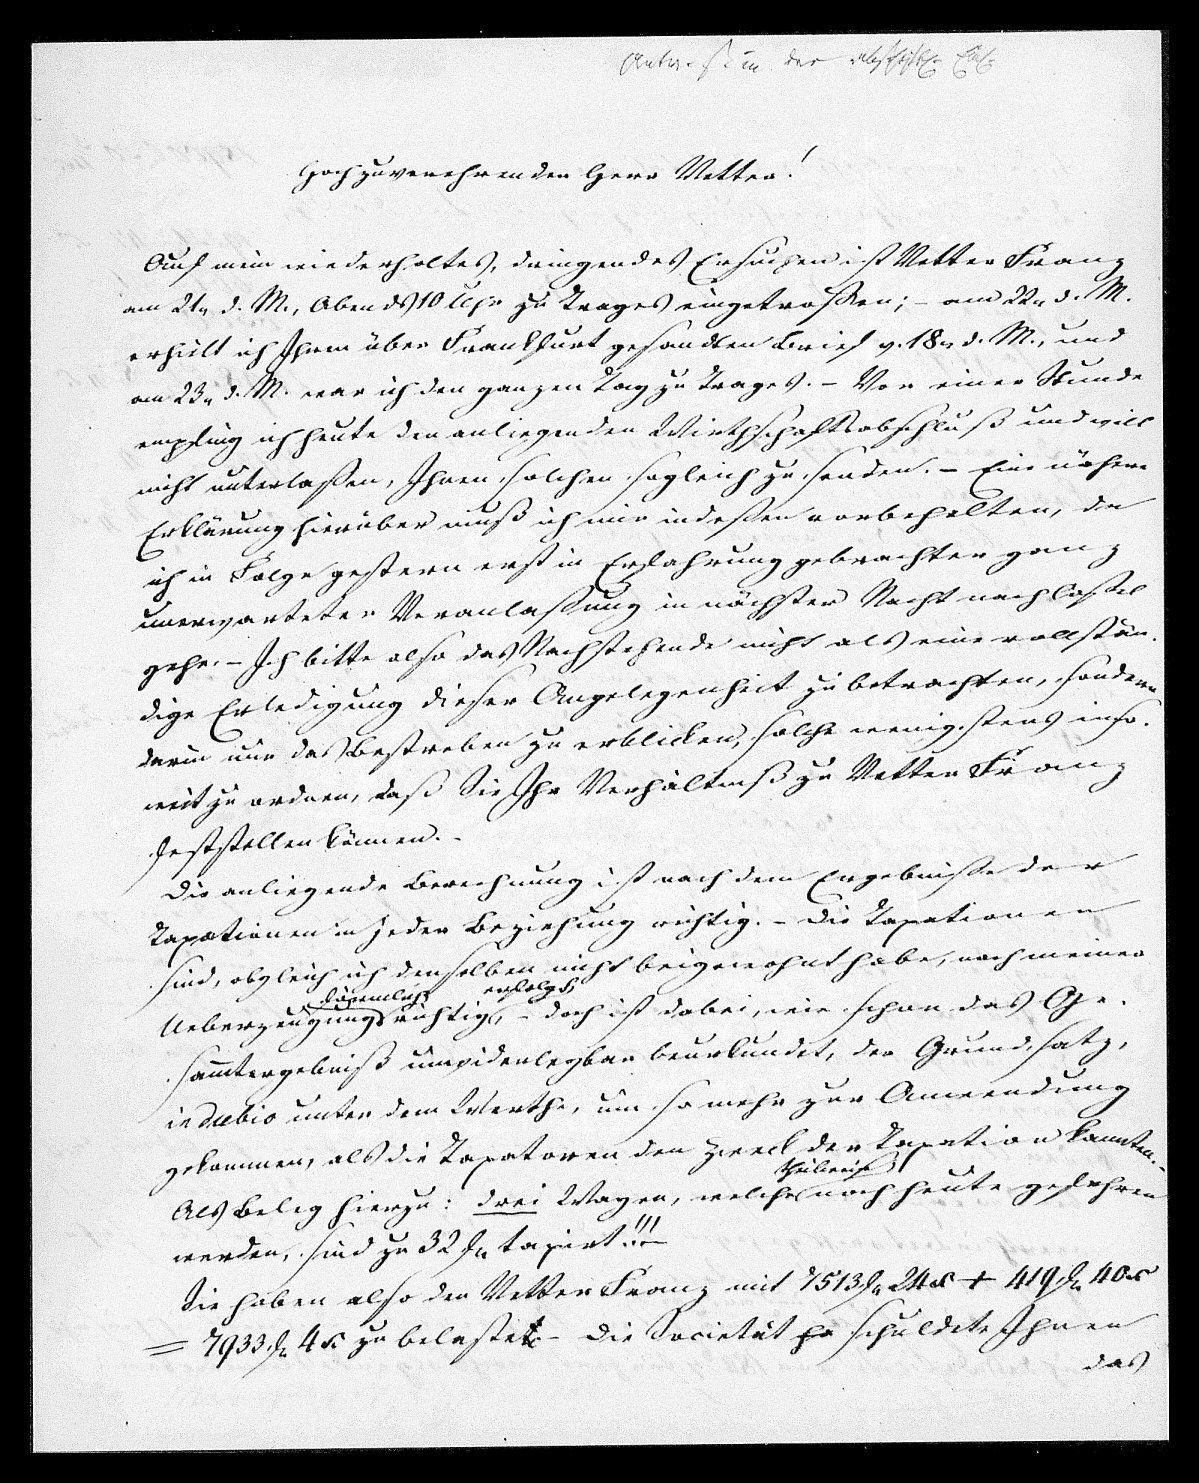 Antw. ist in der
Hochzuverehrender Herr Vetter!
Auf mein wiederholtes, dringendes Ersuchen ist Vetter Franz
am 21n d. M., Abends 10 Uhr zu Trages eingetroffen; – am 22n d. M.
erhielt ich Ihren über Frankfurt gesandten Brief v. 18n d. M., und
am 23n d. M. war ich den ganzen Tag zu Trages. – Vor einer Stunde
empfing ich heute den anliegenden Wirthschaftsabschluß und will
nicht unterlaßen, Ihnen solchen sogleich zu senden. – Eine nähere
Erklärung hierüber muß ich mir indeßen vorbehalten, da
ich in Folge gestern erst in Erfahrung gebrachter ganz
unerwarteter Veranlaßung in nächster Nacht nach Caßel
gehe. – Ich bitte also das Nachstehende nicht als eine vollstän-
dige Erledigung dieser Angelegenheit zu betrachten, sondern
darin nur das Bestreben zu erblicken, solche wenigstens inso-
weit zu ordnen, daß Sie Ihr Verhältniß zu Vetter Franz
feststellen können. –
Die anliegende Berechnung ist nach dem Ergebniße der
Taxationen in jeder Beziehung richtig. – Die Taxationen
sind, obgleich ich denselben nicht beigewohnt habe, nach meiner
förmlich erfolgt
Ueberzeugung richtig, – doch ist dabei, wie schon das Ge-
sammtergebniß unwiderlegbar beurkundet, der Grundsatz,
in dubio unter dem Werthe, um so mehr zur Anwendung
gekommen, als die Taxatoren den Zweck der Taxation kannten. –
theilweise
Als Beleg hierzu: drei Wagen, welche noch heute gefahren
werden, sind zu 32 fl taxirt!!! –
Sie haben also den Vetter Franz mit 7513 fl 24 x + 419 fl 40 x
= 7933 fl 4 x zu belasten – Die Societät schuldete Ihnen
das